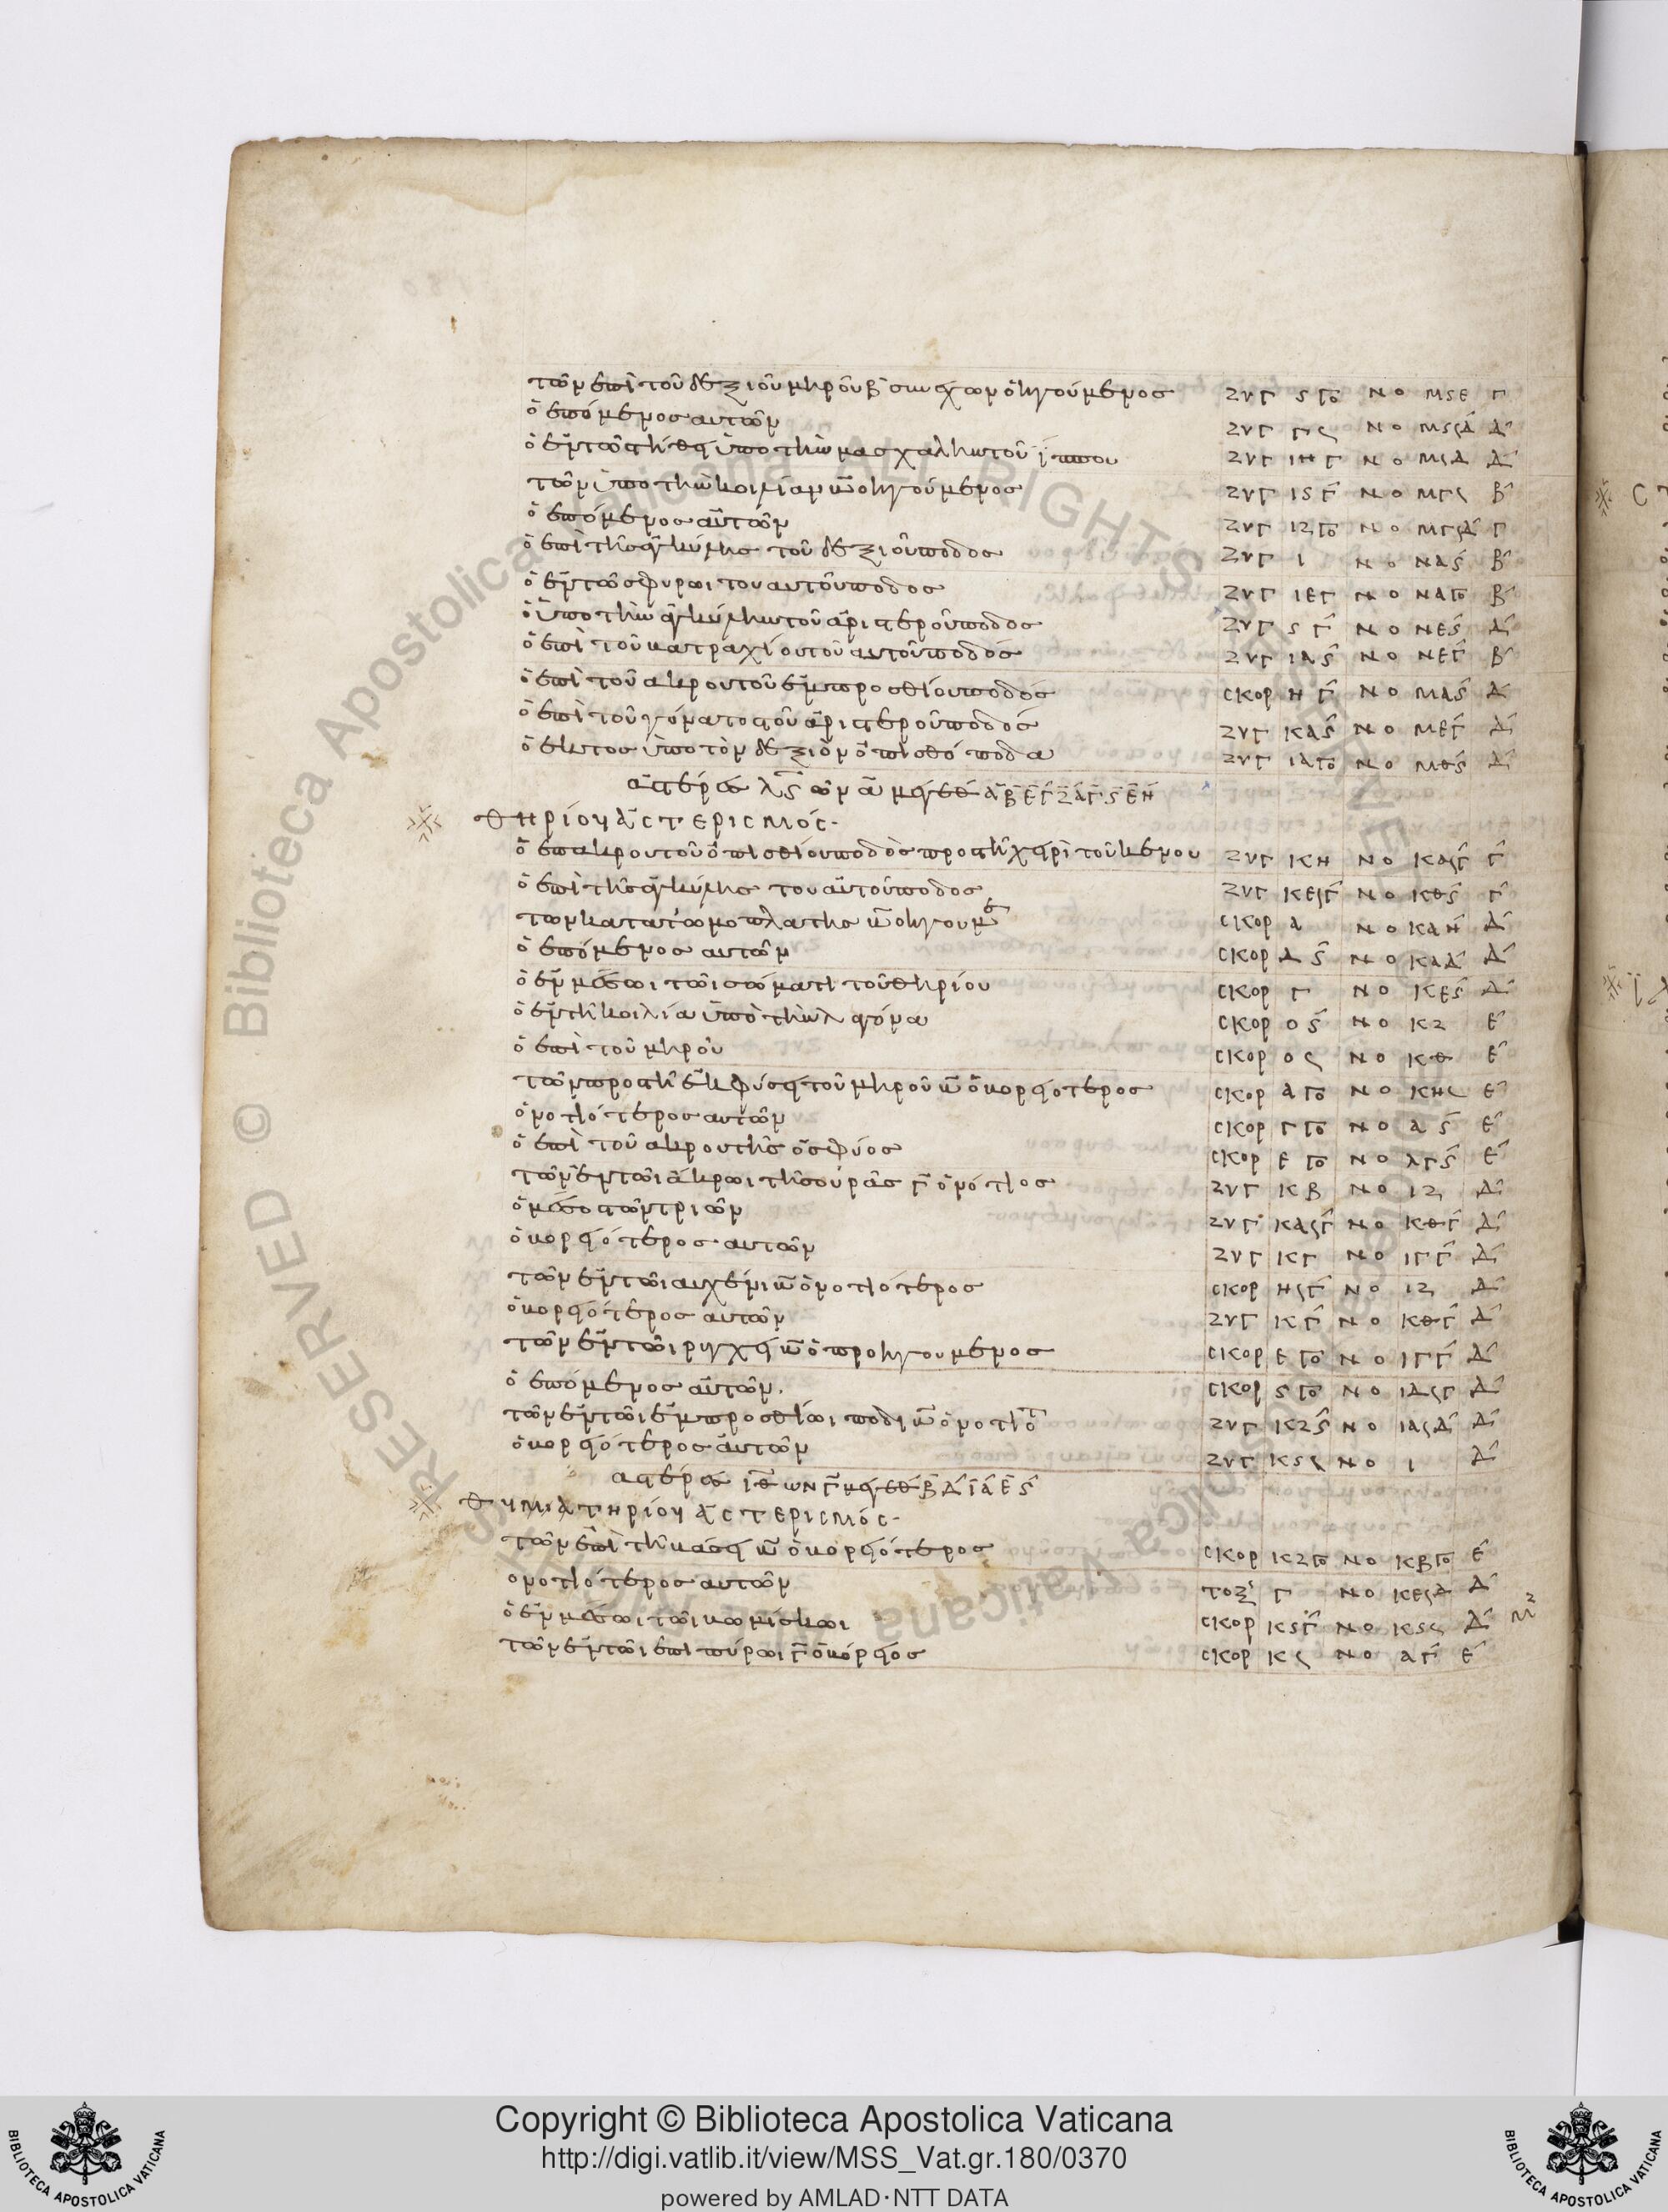 τῶν ἐπὶ τοῦ δεξιοῦ μηροῦ β συνεχῶν ὁ ἡγούμενος ΖΥΓ Ϛ Γο ΝΟ ΜϚ Ε Γ
ὁ ἑπόμενος αυτῶν ΖΥΓ Γς ΝΟ ΜϚς Δ΄ Δ΄
ὁ ἐν τῶ στήθει ὑπὸ τὴν μασχάλην τοῦ ἵππου ΖΥΓ ΙΗ Γ ΝΟ Μς Δ Δ΄
τῶν ὑπὸ τὴν κοιλίαν β̅ ὁ ἡγούμενος ΖΥΓ ΙϚ Γ΄ ΝΟ ΜΓς Β΄
ὁ ἑπόμενος αὐτῶν ΖΥΓ ΙΖ Γο ΝΟ ΜΓς Δ΄ Γ
ὁ ἐπὶ τῆς ἀγκύλης τοῦ δεξιοῦ ποδος ΖΥΓ Ι ΝΟ ΝΑϚ΄ Β΄
ὁ ἐν τῶ σφυρωι του αυτοῦ ποδος ΖΥΓ ΙΕΓ ΝΟ ΝΑ Γο Β΄
ὁ ὑπὸ τὴν ἀγκύλην τοῦ ἀριστεροῦ ποδος ΖΥΓ Ϛ Γ΄ ΝΟ ΝΕϚ΄ Δ΄
ὁ ἐπὶ τοῦ βατραχίου τοῦ αυτοῦ ποδός ΖΥΓ ΙΑϚ΄ ΝΟ ΝΕΓ΄ Β΄
ὁ ἐπὶ τοῦ ακρου τοῦ ἐμπροσθίου ποδός ϹΚΟΡ Η Γ΄ ΝΟ ΜΑϚ΄ Δ΄
ὁ ἐπὶ τοῦ γόνατος τοῦ ἀριστεροῦ ποδός ΖΥΓ ΚΑϚ΄ ΝΟ ΜΕΓ΄ Δ΄
ὁ ἐκτος ὑπὸ τὸν δεξιὸν ὀπίσθιο ποδα ΖΥΓ ΙΑ Γο ΝΟ ΜΘϚ΄ Δ΄
ἀστέρες λζ ὧν α μεγέθ Α Β Ε Γ Ζ Δ ΙϚ Ε Η
ΘΗΡΙΟΥ ἈϹΤΕΡΙϹΜΟϹ·
ὁ ἐπ ακρου τοῦ ὀπισθίου ποδὸς πρὸς τῆ χειρὶ τοῦ κενταύρου ΖΥΓ ΚΗ ΝΟ ΚΔςΓ΄ Γ΄
ὁ ἐπὶ τῆς ἀγκύλης του αὐτοῦ ποδος ΖΥΓ ΚΕςΓ΄ ΝΟ ΚΘϚ΄ Γ΄
των κατα τὰ ὠμοπλατης β̅ ὁ ἡγουμ ϹΚΟΡ Α ΝΟ ΚΑΗ Δ΄
ὁ ἑπόμενος αυτῶν ϹΚΟΡ Δ Ϛ΄ ΝΟ ΚΑΔ΄ Δ΄
ὁ ἐν μέσωι τῶι σώματι τοῦ θηρίου ϹΚΟΡ Γ ΝΟ ΚΕϚ΄ Δ΄
ὁ ἐν τῆ κοιλία ὑπὸ τὴν λαγόνα ϹΚΟΡ Ο Ϛ΄ ΝΟ ΚΖ Ε΄
ὁ ἐπὶ τοῦ μηροῦ ϹΚΟΡ Ο ς ΝΟ ΚΘ Ε΄
τῶν πρὸς τῆ ἐκφύσει τοῦ μηροῦ β̅ ὁ βορειότερος ϹΚΟΡ Α Γο ΝΟ ΚΗς Ε΄
ὁ νοτιότερος αυτῶν ϹΚΟΡ Γ Γο ΝΟ Λ Ϛ΄ Ε΄
ὁ ἐπὶ τοῦ ακρου τῆς ὀσφύος ϹΚΟΡ Ε Γο ΝΟ ΛΓϚ΄ Ε΄
τῶν ἐν τῶι ἄκρωι τῆς οὐρᾶς Γ̅ ὁ νότιος ΖΥΓ ΚΒ ΝΟ ΙΖ Δ΄
ὁ μέσος τῶν τριῶν ΖΥΓ ΚΑςΓ΄ ΝΟ ΚΘΓ΄ Δ΄
ὁ βορειότερος αυτῶν ΖΥΓ ΚΓ ΝΟ ΙΓΓ΄ Δ΄
τῶν ἐν τῶι αυχένι β̅ ὁ νοτιότερος ϹΚΟΡ ΗςΓ΄ ΝΟ ΙΖ Δ΄
ὁ βορειότερος αυτῶν ΖΥΓ ΚΓ΄ ΝΟ ΚΘΓ΄ Δ΄
τῶν ἐν τῶι ρυγχει β̅ ὁ προηγουμενος ϹΚΟΡ Ε Γο ΝΟ ΙΓΓ΄ Δ΄
ὁ ἑπόμενος αὐτῶν. ϹΚΟΡ Ϛ Γο ΝΟ ΙΔςΓ Δ΄
τῶν ἐν τῶι ἐμπροσθίωι ποδι β̅ ὁ νοτιο ΖΥΓ ΚΖϚ΄ ΝΟ ΙΑςΔ΄ Δ΄
ὁ βορειότερος αὐτῶν ΖΥΓ ΚϚς ΝΟ Ι Δ΄
αστέρες ΙΘ ὧν Γ μεγέθ Β Δ ΙΑ Ε Ϛ
ΘΥΜΙΑΤΗΡΙΟΥ ἈϹΤΕΡΙϹΜΟϹ·
τῶν ἐπὶ τῆ βάσει β̅ ὁ βορειότερος ϹΚΟΡ ΚΖ Γο ΝΟ ΚΒ Γο Ε΄
ο νοτιότερος αυτῶν ΤΟΞ Γ ΝΟ ΚΕςΔ Δ΄
ὁ ἐν μέσωι τῶι βωμίσκωι ϹΚΟΡ ΚϚΓ΄ ΝΟ ΚϚς Δ΄
τῶν ἐν τῶι ἐπιπύρωι Γ̅ ὁ βόρειος ϹΚΟΡ Κς ΝΟ ΛΓ΄ Ε΄
© Biblioteca Apostolica Vaticana ALL RIGHTS RESERVED
Copyright © Biblioteca Apostolica Vaticana
http://digi.vatlib.it/view/MSS_Vat.gr.180/0370
powered by AMLAD·NTT DATA
BIBLIOTECA APOSTOLICA VATICANA
BIBLIOTECA APOSTOLICA VATICANA